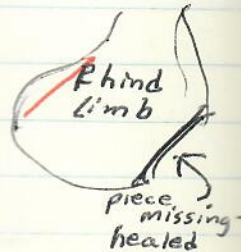 R hind
limb
piece
missing
healed